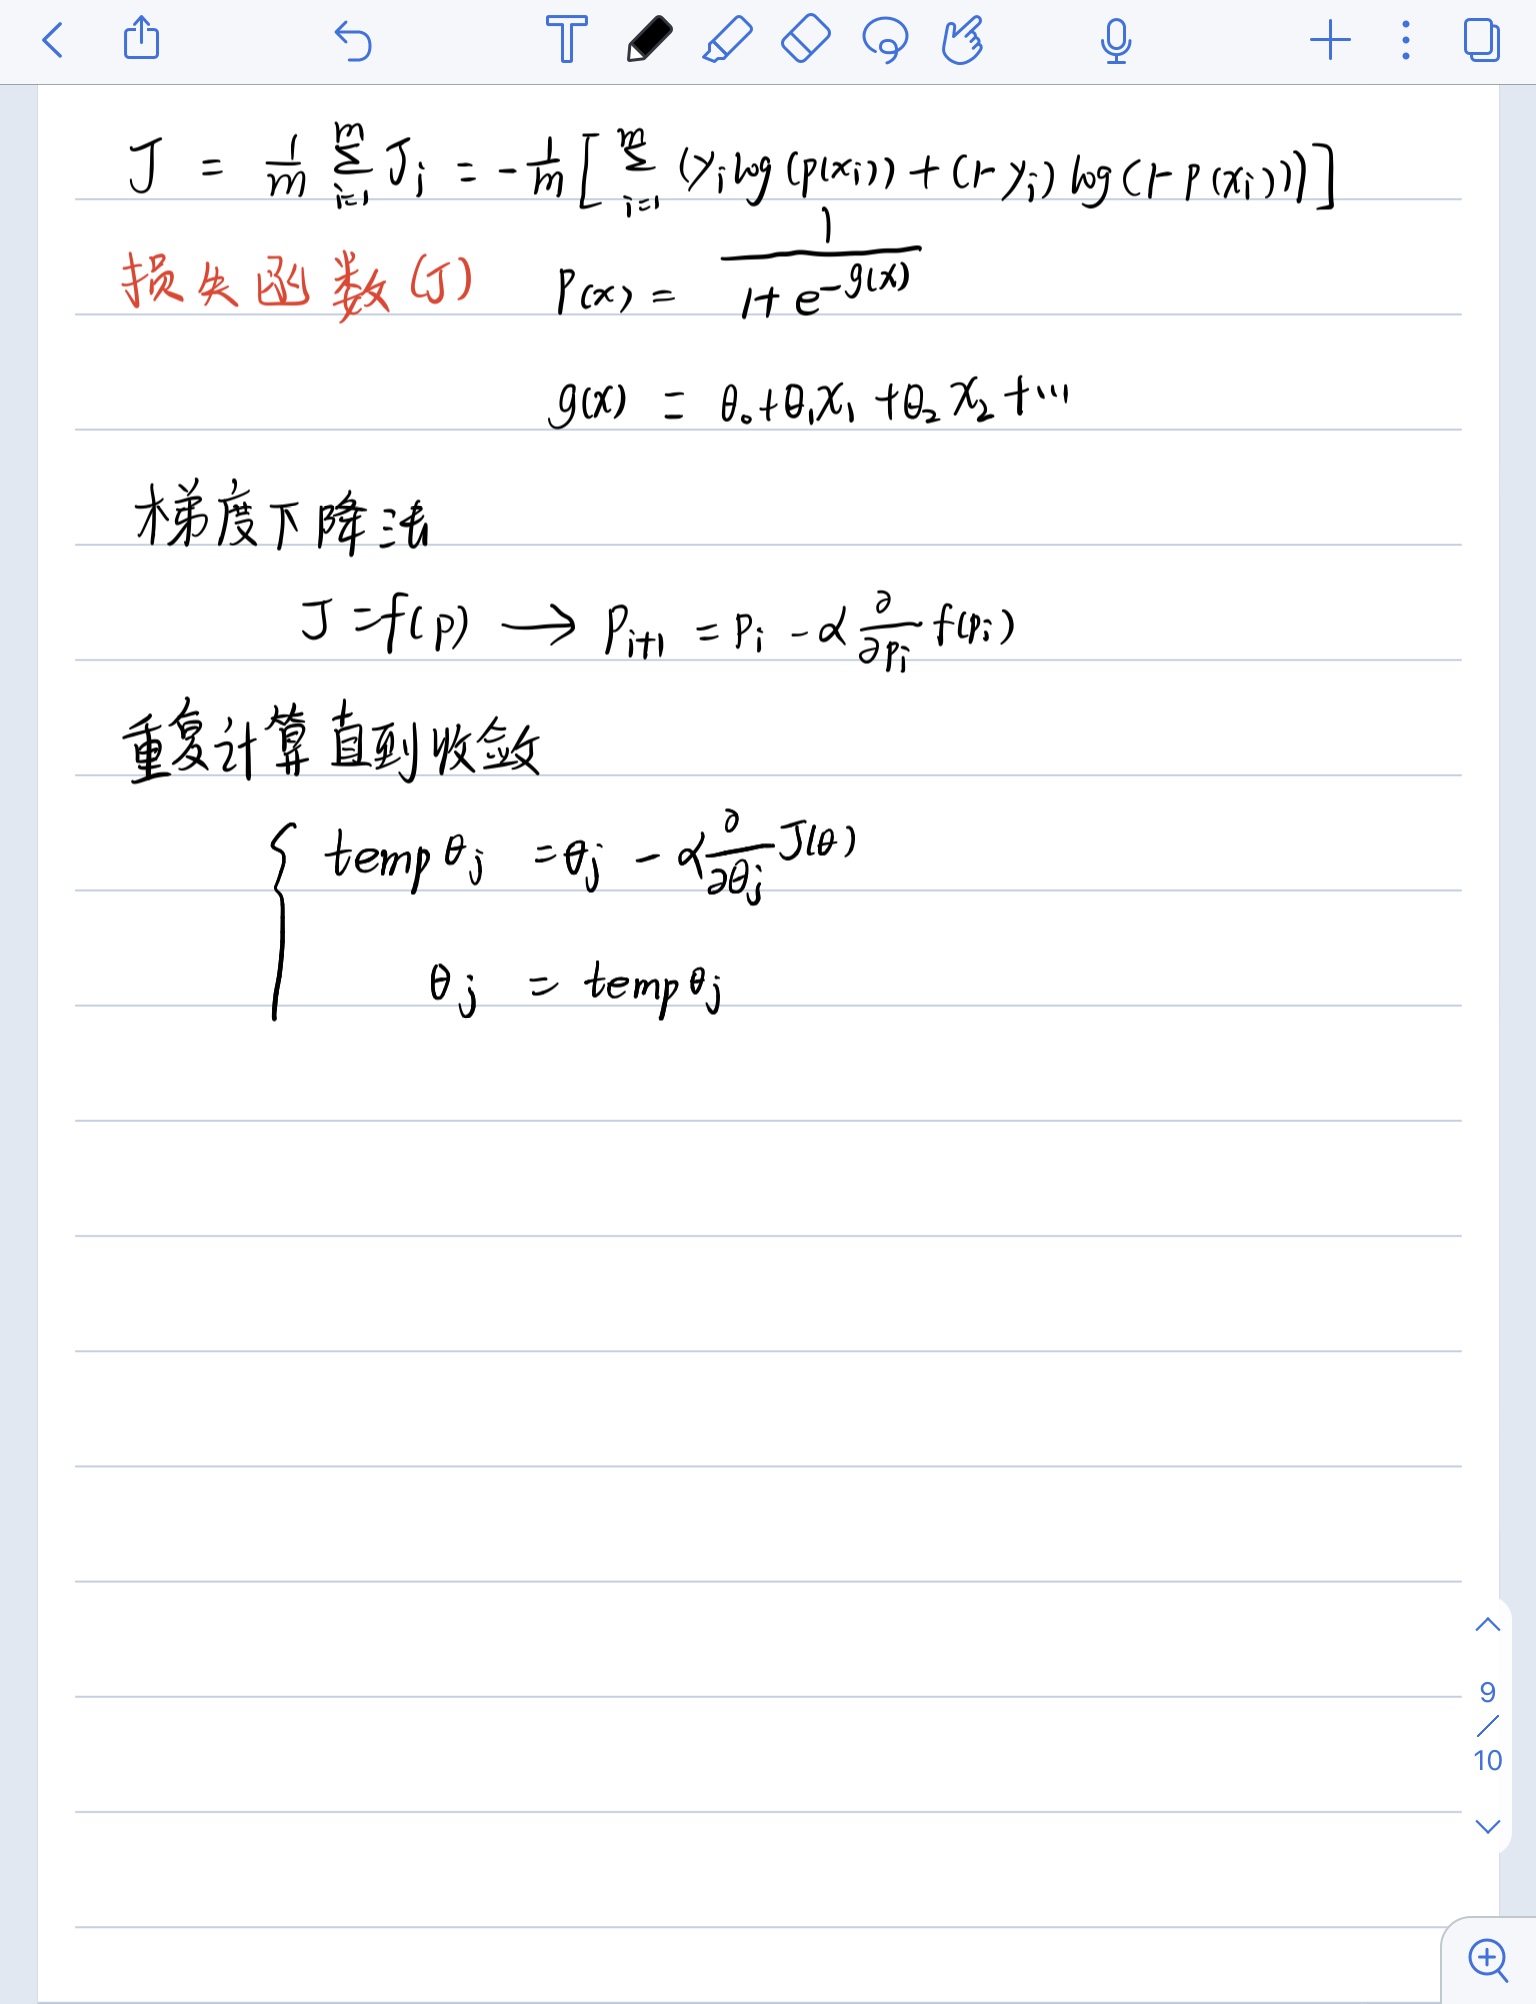 J = 1/m Σ_{i=1}^{m} J_i = -1/m [ Σ_{i=1}^{m} (y_i log(p(x_i)) + (1-y_i) log(1-p(x_i))) ]
损失函数(J) p(x) = 1/(1+e^{-g(x)})
g(x) = θ₀+θ₁x₁+θ₂x₂+···
梯度下降法
J=f(p) → p_{i+1} = p_i - α ∂/∂p_i f(p_i)
重复计算直到收敛
{ temp θ_j = θ_j - α ∂/∂θ_j J(θ)
θ_j = temp θ_j
9
/
10